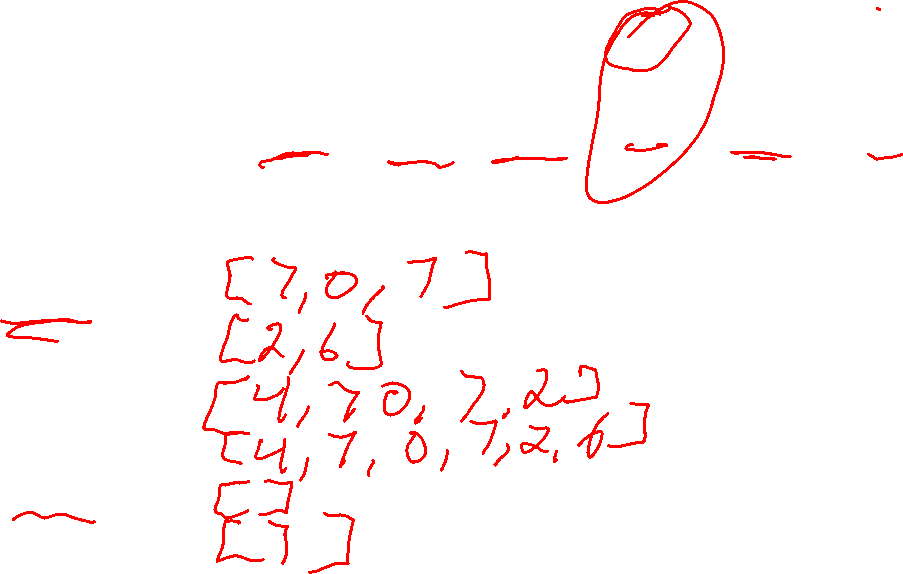 [7,0,7]
[2,6]
[4,7 0,7,2]
[4,7,0,7,2,6]
[]
[7]